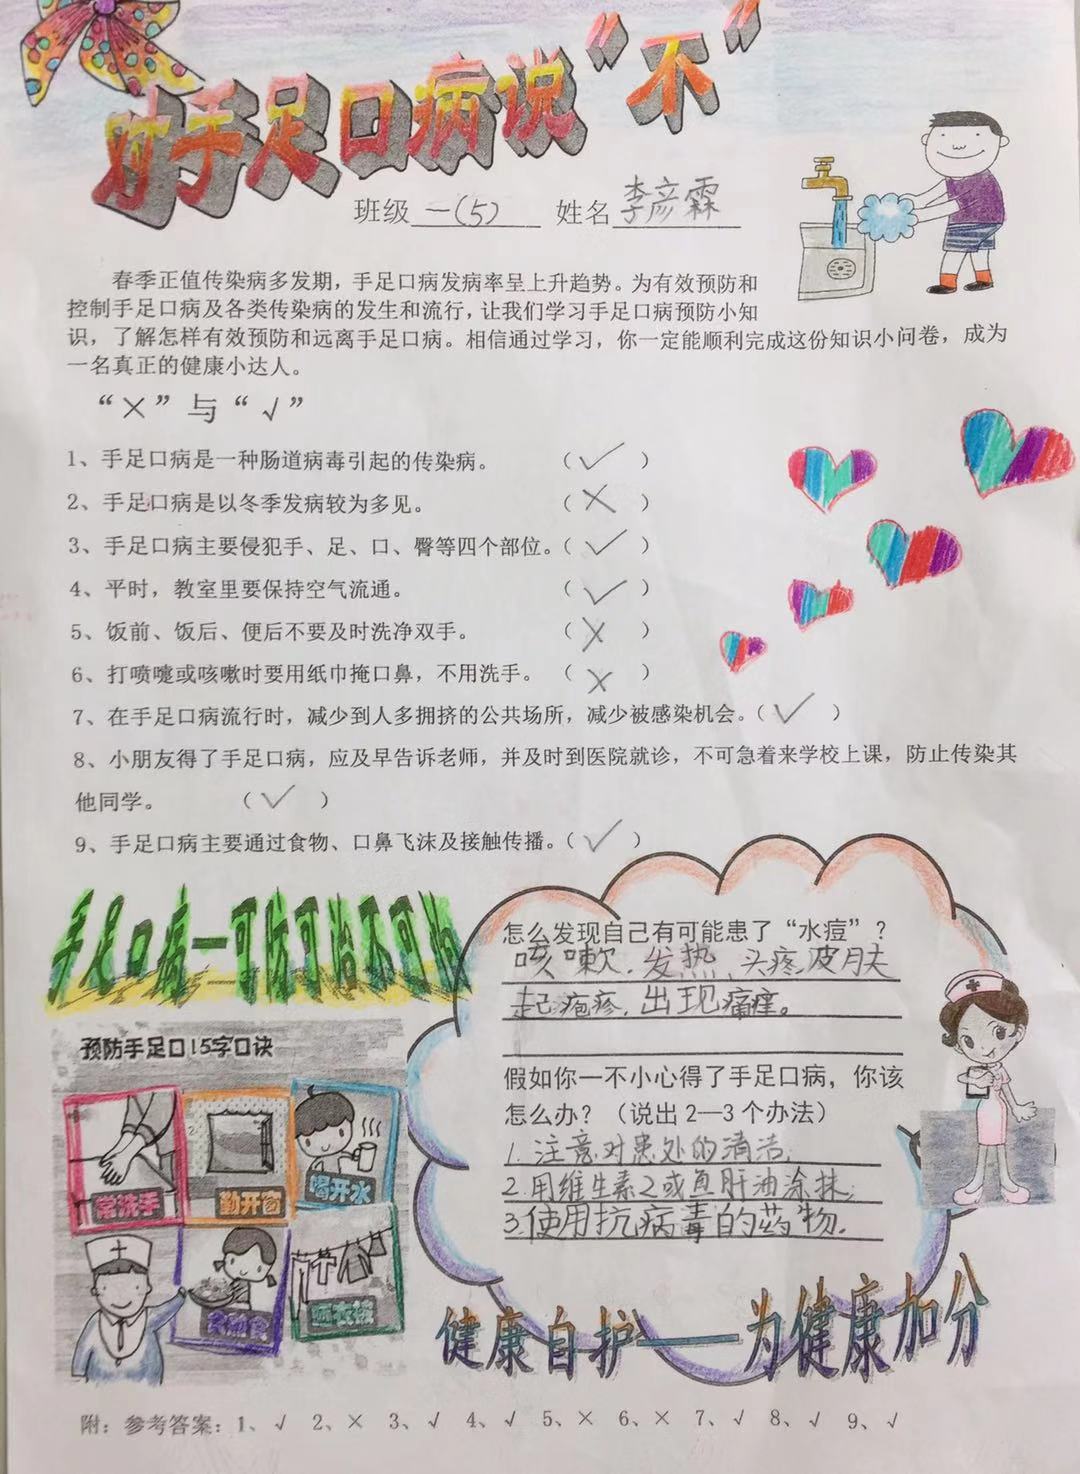 对手足口病说“不”
班级 一(5) 姓名 李彦霖
春季正值传染病多发期，手足口病发病率呈上升趋势。为有效预防和
控制手足口病及各类传染病的发生和流行，让我们学习手足口病预防小知
识，了解怎样有效预防和远离手足口病。相信通过学习，你一定能顺利完成这份知识小问卷，成为
一名真正的健康小达人。
“×”与“√”
1、手足口病是一种肠道病毒引起的传染病。（√）
2、手足口病是以冬季发病较为多见。（×）
3、手足口病主要侵犯手、足、口、臀等四个部位。（√）
4、平时，教室里要保持空气流通。（√）
5、饭前、饭后、便后不要及时洗净双手。（×）
6、打喷嚏或咳嗽时要用纸巾掩口鼻，不用洗手。（×）
7、在手足口病流行时，减少到人多拥挤的公共场所，减少被感染机会。（√）
8、小朋友得了手足口病，应及早告诉老师，并及时到医院就诊，不可急着来学校上课，防止传染其
他同学。（√）
9、手足口病主要通过食物、口鼻飞沫及接触传播。（√）
手足口病一可防可治不可怕
预防手足口15字口诀
常洗手
勤开窗
喝开水
食熟食
晒衣被
怎么发现自己有可能患了“水痘”？
咳嗽、发热、头疼、皮肤
起疱疹，出现痛痒。
假如你一不小心得了手足口病，你该
怎么办？（说出2—3个办法）
1.注意对患处的清洁；
2.用维生素2或鱼肝油涂抹；
3.使用抗病毒的药物。
健康自护——为健康加分
附：参考答案：1、√ 2、× 3、√ 4、√ 5、× 6、× 7、√ 8、√ 9、√